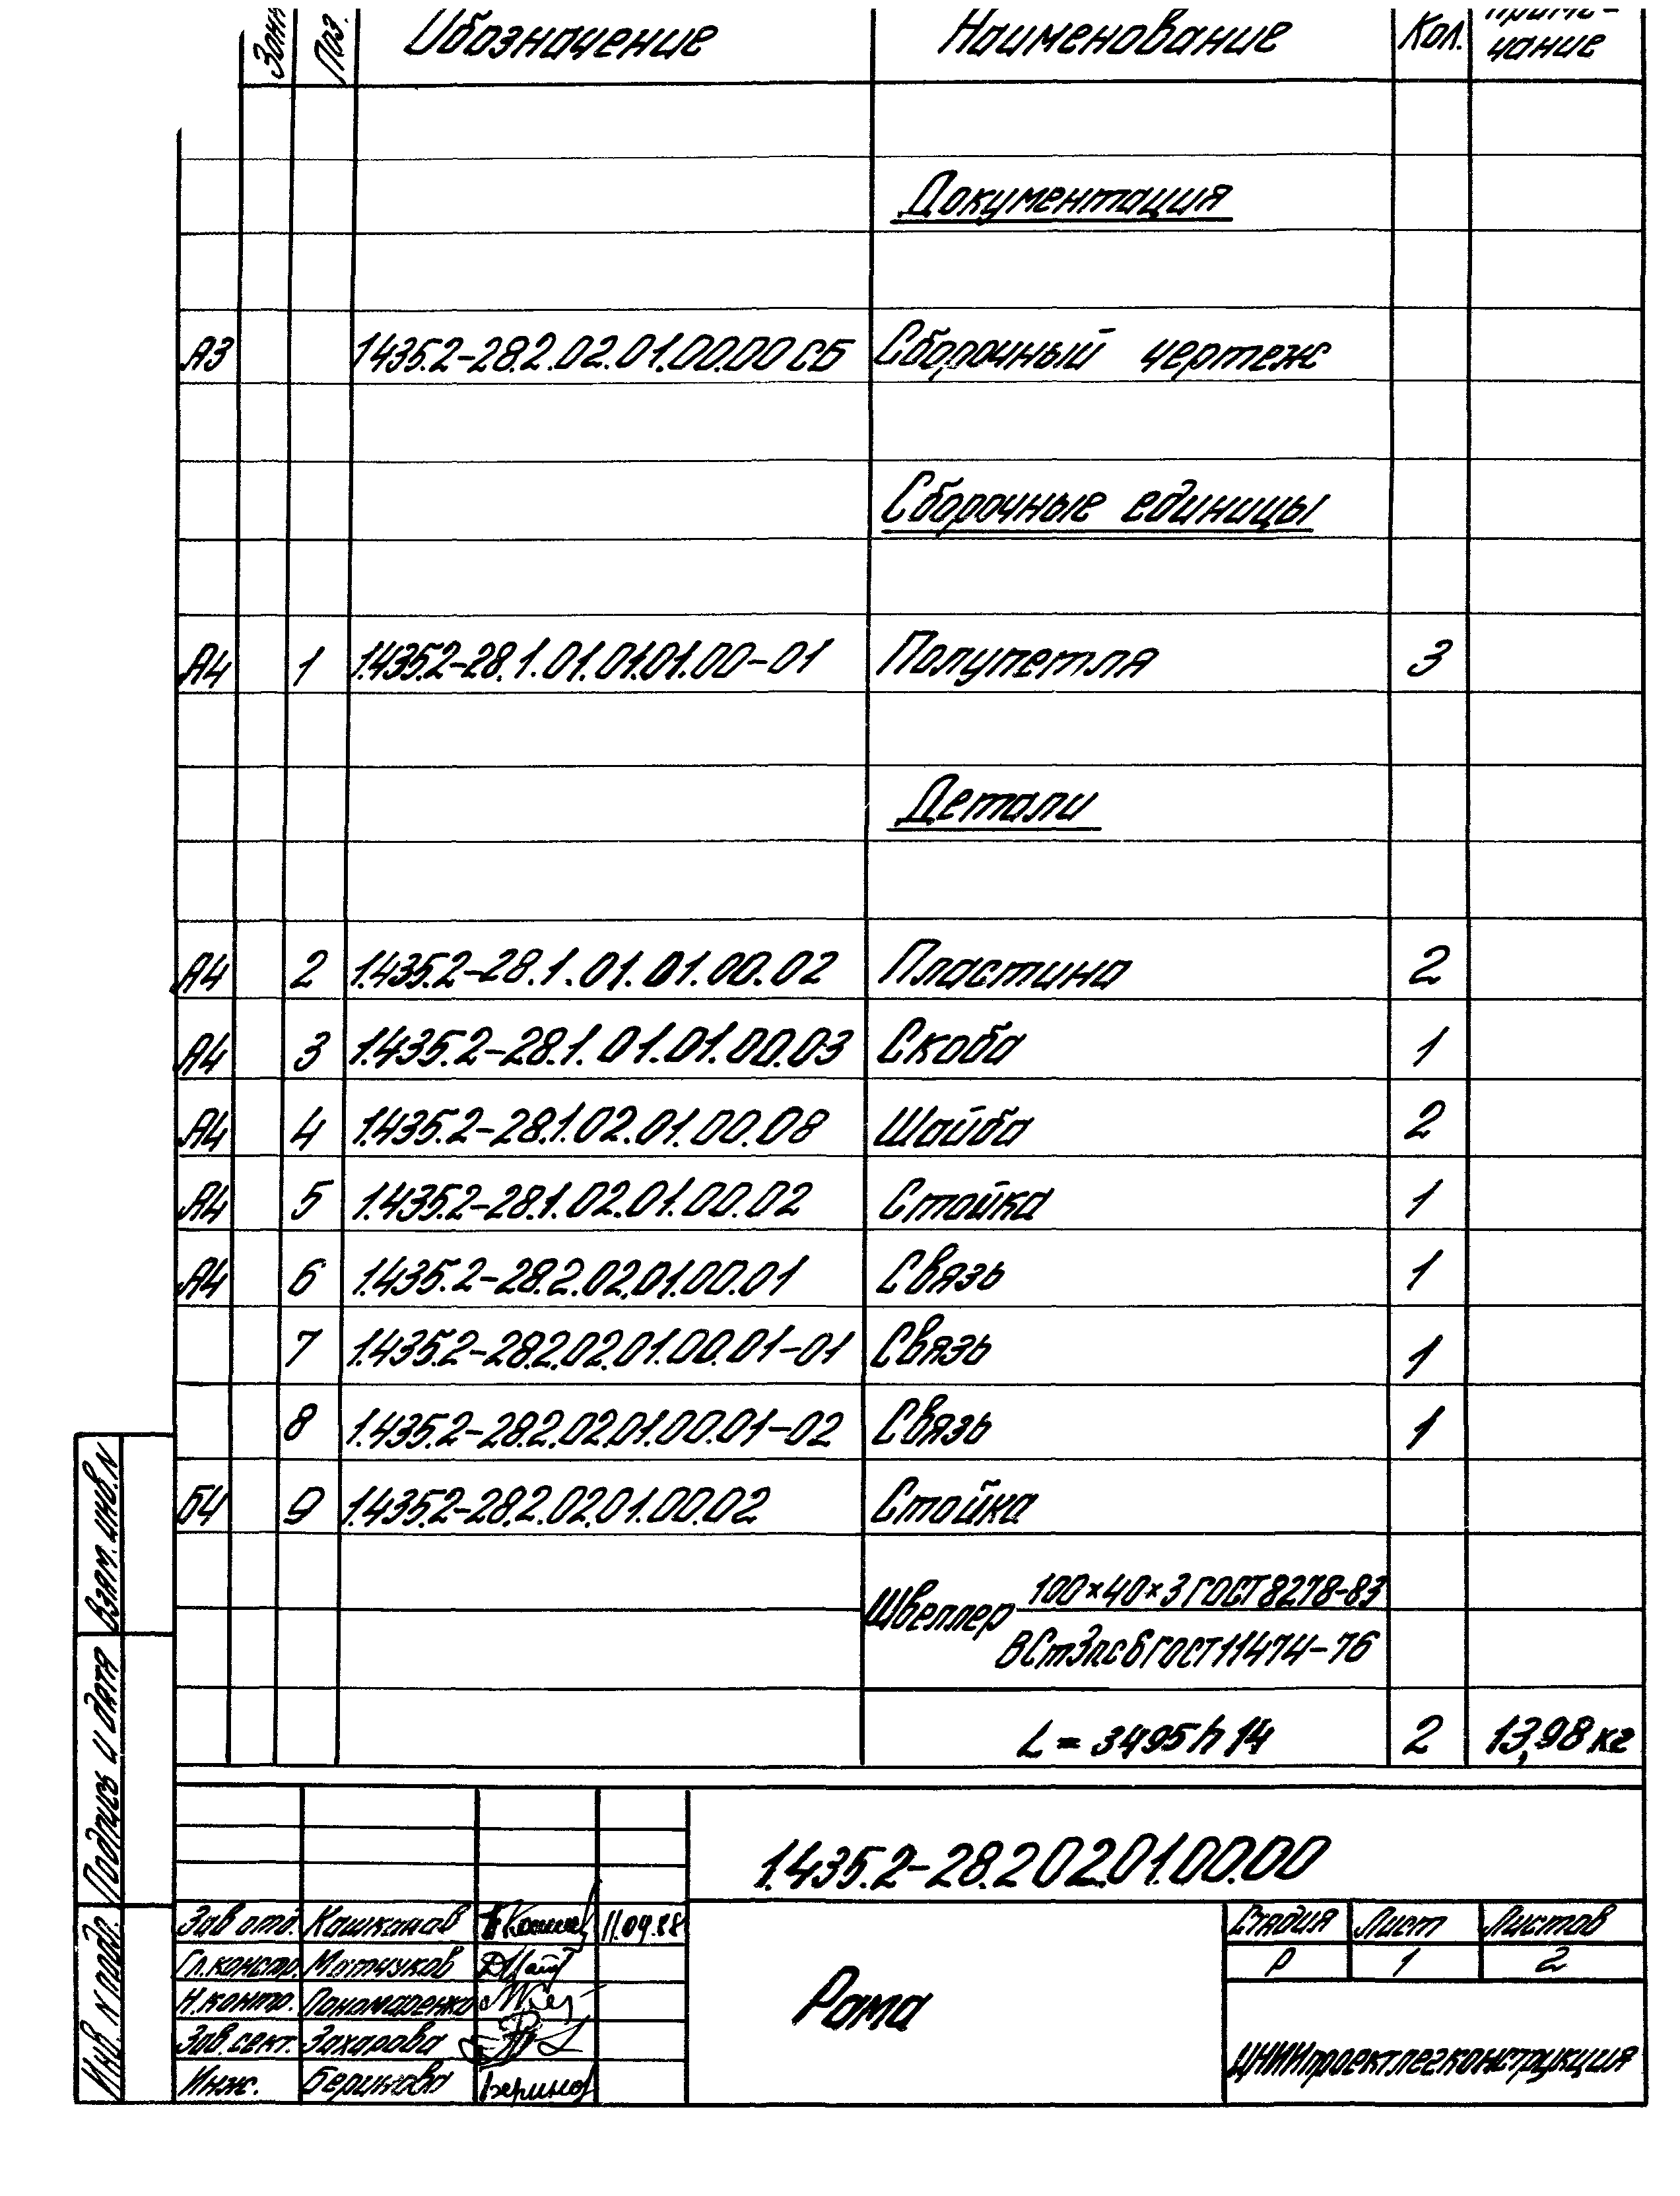 Поз. Обозначение Наименование Кол. чание
Документация
А3 1.435.2-28.2.02.01.00.00 СБ Сборочный чертеж
Сборочные единицы
А4 1 1.435.2-28.1.01.01.01.00-01 Полупетля 3
Детали
А4 2 1.435.2-28.1.01.01.00.02 Пластина 2
А4 3 1.435.2-28.1.01.01.00.03 Скоба 1
А4 4 1.435.2-28.1.02.01.00.08 Шайба 2
А4 5 1.435.2-28.1.02.01.00.02 Стойка 1
А4 6 1.435.2-28.2.02.01.00.01 Связь 1
7 1.435.2-28.2.02.01.00.01-01 Связь 1
8 1.435.2-28.2.02.01.00.01-02 Связь 1
Б4 9 1.435.2-28.2.02.01.00.02 Стойка
Швеллер 100×40×3 ГОСТ 8278-83
ВСт3пс6 ГОСТ 11474-76
L = 3495 h 14 2 13,98 кг
Взам. инв. N
Подпись и дата
Инв. N подл.
1.435.2-28.2.02.01.00.00
Зав отд. 11.04.88
Гл. констр.
Н. контр. Пономаренко
Зав. сект. Захарова
Инж. Беринова
Рама
Стадия Лист Листов
Р 1 2
ЦНИИпроектлегконструкция